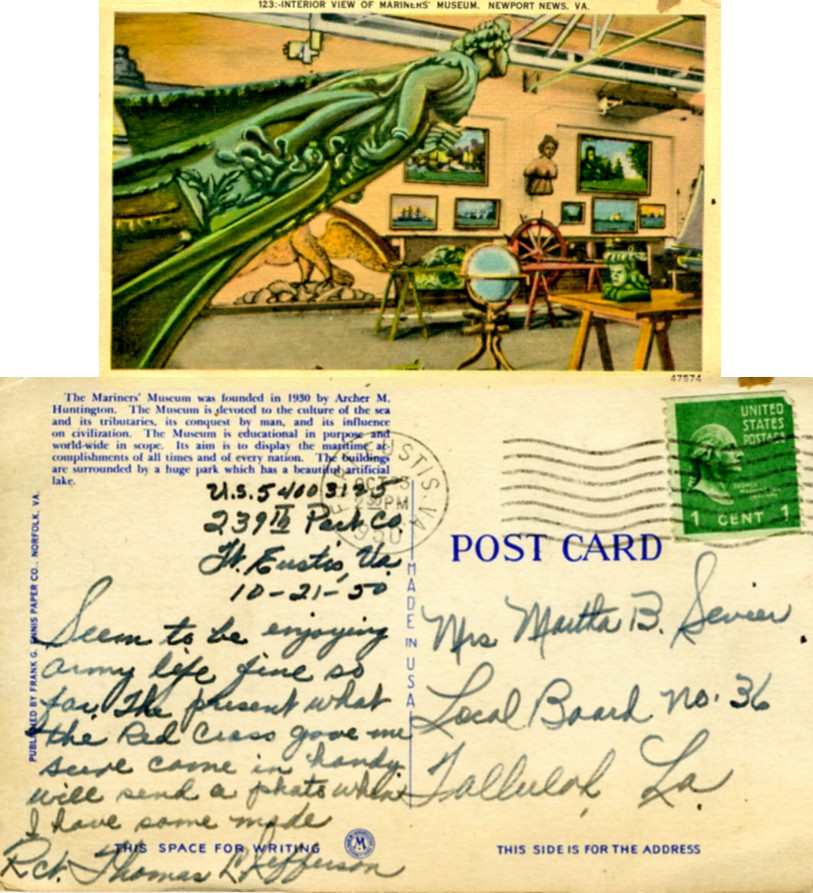 123:-INTERIOR VIEW OF MARINERS' MUSEUM, NEWPORT NEWS, VA.
47574
The Mariners' Museum was founded in 1930 by Archer M.
Huntington. The Museum is devoted to the culture of the sea
and its tributaries, its conquest by man, and its influence
on civilization. The Museum is educational in purpose and
world-wide in scope. Its aim is to display the maritime ac-
complishments of all times and of every nation. The buildings
are surrounded by a huge park which has a beautiful artificial
lake.
EUSTIS, VA.
OCT 23
2 30 PM
1950
UNITED
STATES
POSTAGE
1 CENT 1
PUBLISHED BY FRANK G. ENNIS PAPER CO., NORFOLK, VA.
U.S. 54003125
239th Port Co.
Ft. Eustis, Va.
10-21-50
Seem to be enjoying
army life fine so
far. The present what
the Red Cross gave me
sure came in handy
will send a photo when
I have some made
Rct. Thomas L. Jefferson
THIS SPACE FOR WRITING
MADE IN USA
POST CARD
Mrs Martha B. Sevier
Local Board No. 36
Tallulah, La.
THIS SIDE IS FOR THE ADDRESS